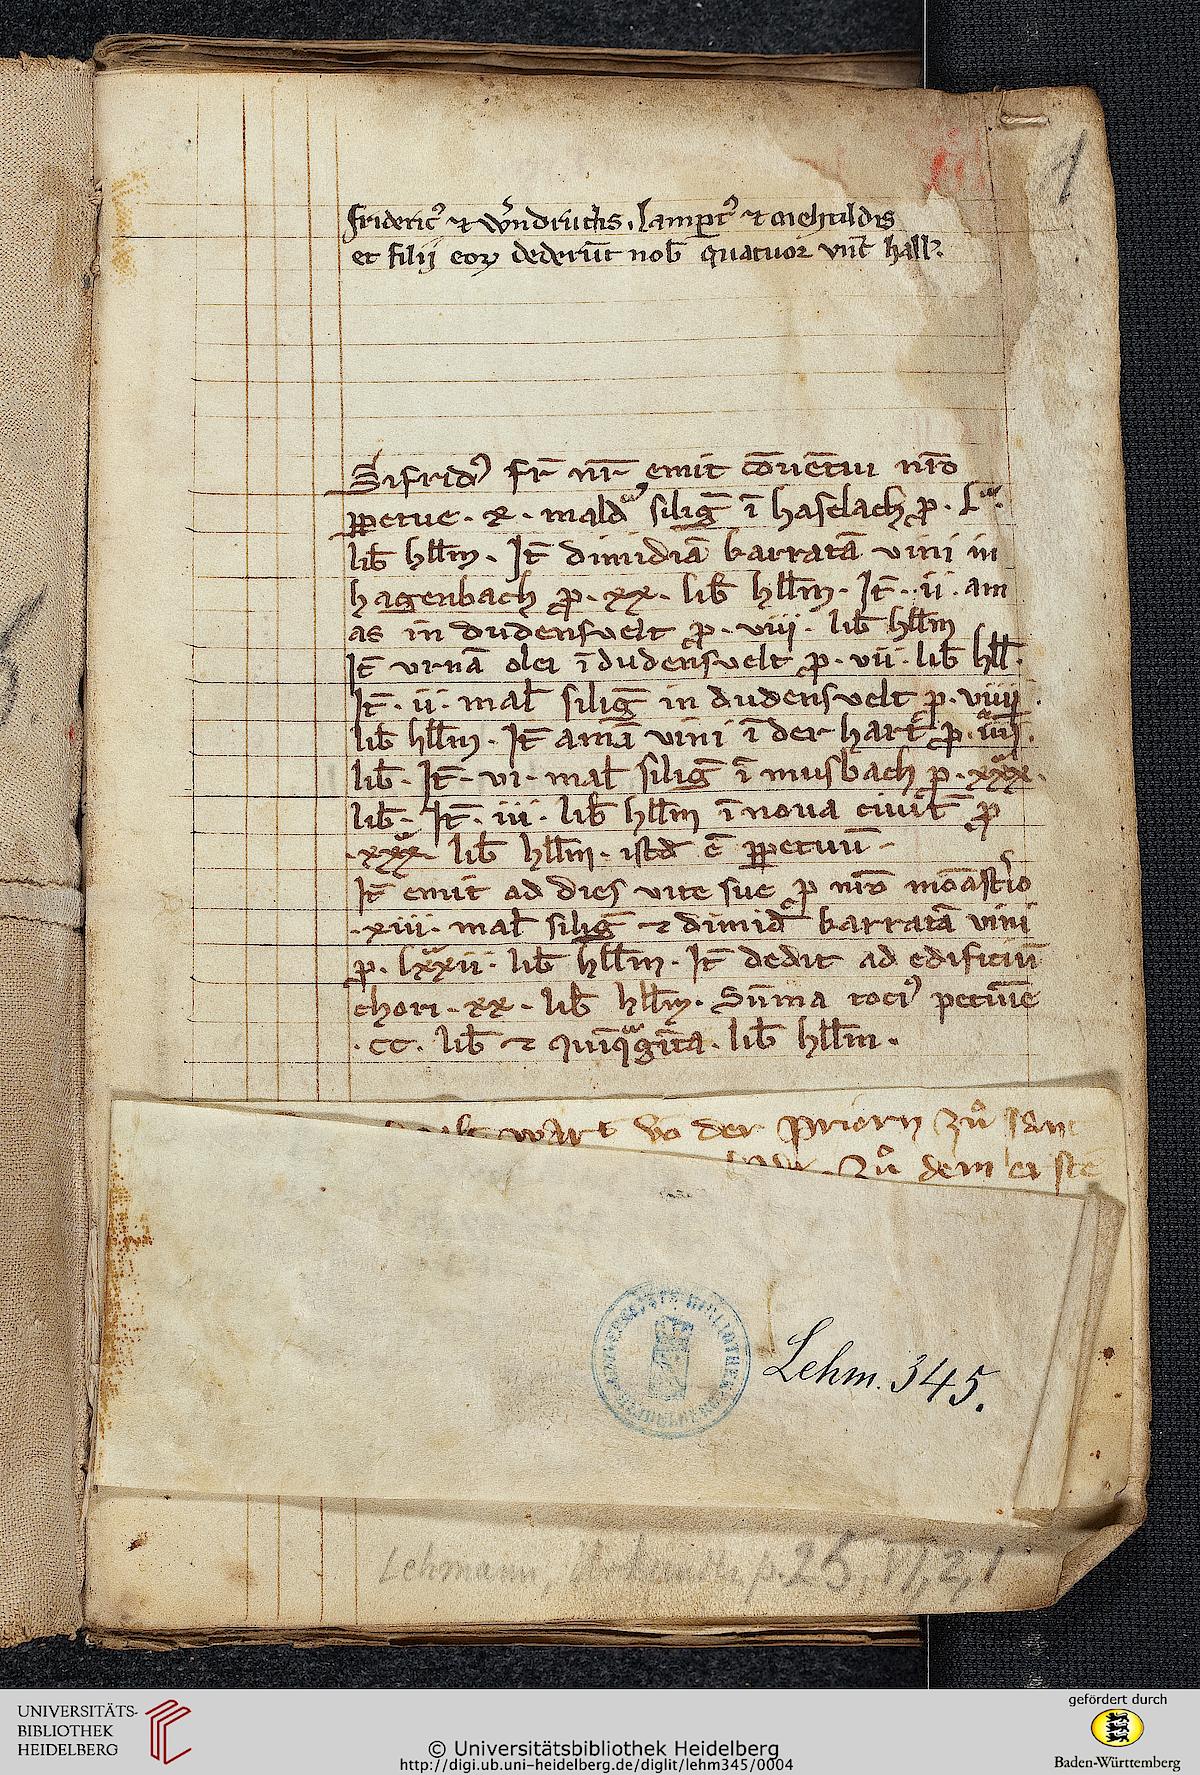 1
frideric⁹ ⁊ W̓ndrudis. Lamp̲t⁹ ⁊ mehtildis
et filij eoꝝ dederūt nob̄ quatuor vnc̄ hall̓.
Sifrid⁹ fr̄ nr̄ emit cōuētui nr̄o
ꝑpetue · x · mald̓ siliḡ ī haselach ꝓ · L ·
lib̄ hll̄m · It̄ dimidiā karratā vini in
hagenbach ꝓ · xx · lib̄ hll̄m · It̄ · ii · am
as in dudensvelt ꝓ · viii · lib̄ hll̄m
It̄ vrnā olei ī dudēsvelt ꝓ · vii · lib̄ hll̄ ·
It̄ · ii · mal̄ siliḡ in dudensvelt ꝓ · viiii ·
lib̄ hll̄m · It̄ amā vini ī der hart ꝓ ·
lib̄ · It̄ · vi · mal̄ siliḡ ī musbach ꝓ · xxx ·
lib̄ · It̄ · iii · lib̄ hll̄m ī noua ciuit̄ ꝓ
· xxx · lib̄ hll̄m · istd̄ ē ꝑpetuū ·
It̄ emit ad dies vite sue ꝓ nr̄o monast̓io
· xiii · mal̄ siliḡ ⁊ dimid̄ karratā vini
ꝓ · lxxii · lib̄ hll̄m · It̄ dedit ad edificiū
chori · xx · lib̄ hll̄m · Sūma toci⁹ pecūie
· CC · lib̄ ⁊ quīq̄gīta · lib̄ hll̄m ·
wart vō der Priorn zů sant
zů dem erstē
Lehm. 345.
Lehmann, p. 25, VI, 2, 1
UNIVERSITÄTS-
BIBLIOTHEK
HEIDELBERG
© Universitätsbibliothek Heidelberg
http://digi.ub.uni-heidelberg.de/diglit/lehm345/0004
gefördert durch
Baden-Württemberg